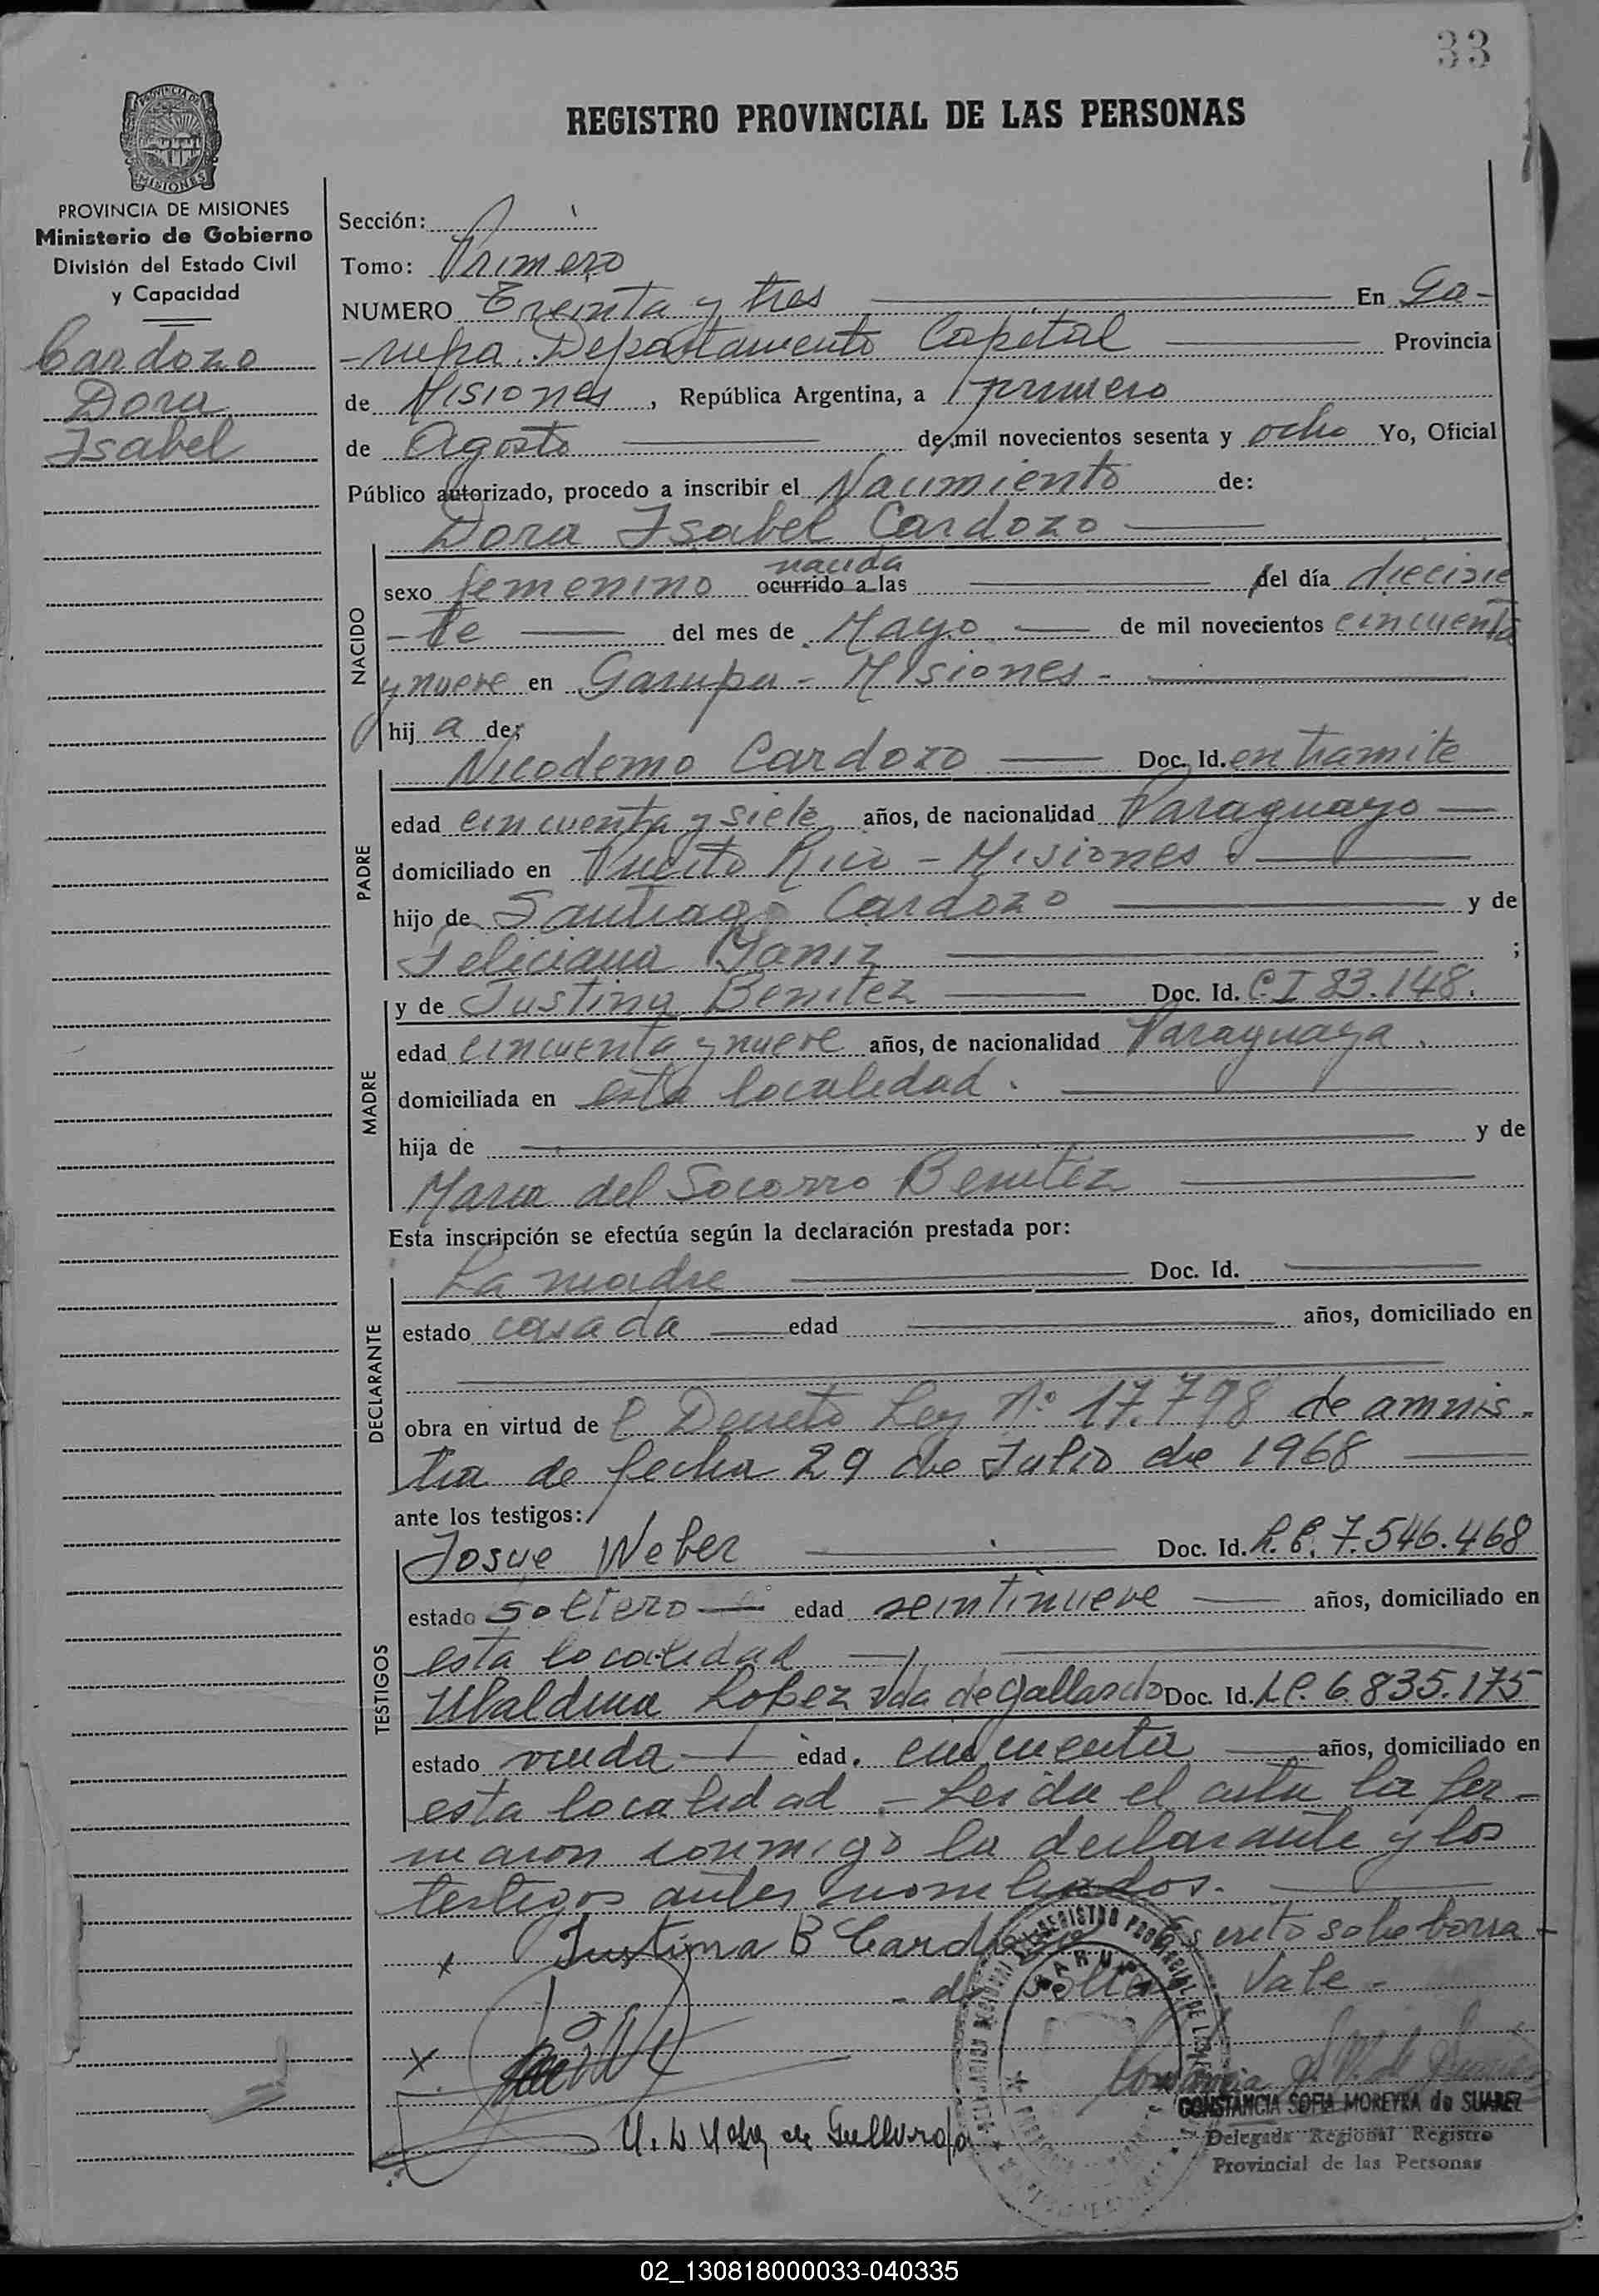 33
REGISTRO PROVINCIAL DE LAS PERSONAS
PROVINCIA DE MISIONES
Ministerio de Gobierno
División del Estado Civil
y Capacidad
Cardozo
Dora
Isabel
Sección:
Tomo: Primero
NUMERO Treinta y tres En Ga-
-rupa Departamento Capital Provincia
de Misiones, República Argentina, a primero
de Agosto de mil novecientos sesenta y ocho Yo, Oficial
Público autorizado, procedo a inscribir el Nacimiento de:
Dora Isabel Cardozo
nacida
NACIDO
sexo femenino ocurrido a las del día diecisie
-te del mes de Mayo de mil novecientos cincuenta
y nueve en Garupa - Misiones -
hij a de;
PADRE
Nicodemo Cardozo Doc. Id. en tramite
edad cincuenta y siete años, de nacionalidad Paraguayo
domiciliado en Puerto Rico - Misiones.
hijo de Santiago Cardozo y de
Feliciana ;
MADRE
y de Justina Benitez Doc. Id. C.I 83.148.
edad cincuenta y nueve años, de nacionalidad Paraguaya.
domiciliada en esta localidad.
hija de y de
Maria del Socorro Benitez
Esta inscripción se efectúa según la declaración prestada por:
DECLARANTE
La madre Doc. Id.
estado casada edad años, domiciliado en
obra en virtud de l Decreto Ley Nº 17.798 de amnis-
tia de fecha 29 de Julio de 1968
ante los testigos:
TESTIGOS
Josue Weber Doc. Id. L.E. 7.546.468
estado soltero edad veintinueve años, domiciliado en
esta localidad
Ubaldina Lopez Vda de Gallardo Doc. Id. L.C. 6.835.175
estado viuda edad. cincuenta años, domiciliado en
esta localidad - Leida el acta la fir-
maron conmigo la declarante y los
testigos antes nombrados.
x Justina B Cardozo Escrito sobre borra-
- do Vale -
x
CONSTANCIA SOFIA MOREYRA de SUAREZ
Delegada Regional Registro
Provincial de las Personas
02_130818000033-040335